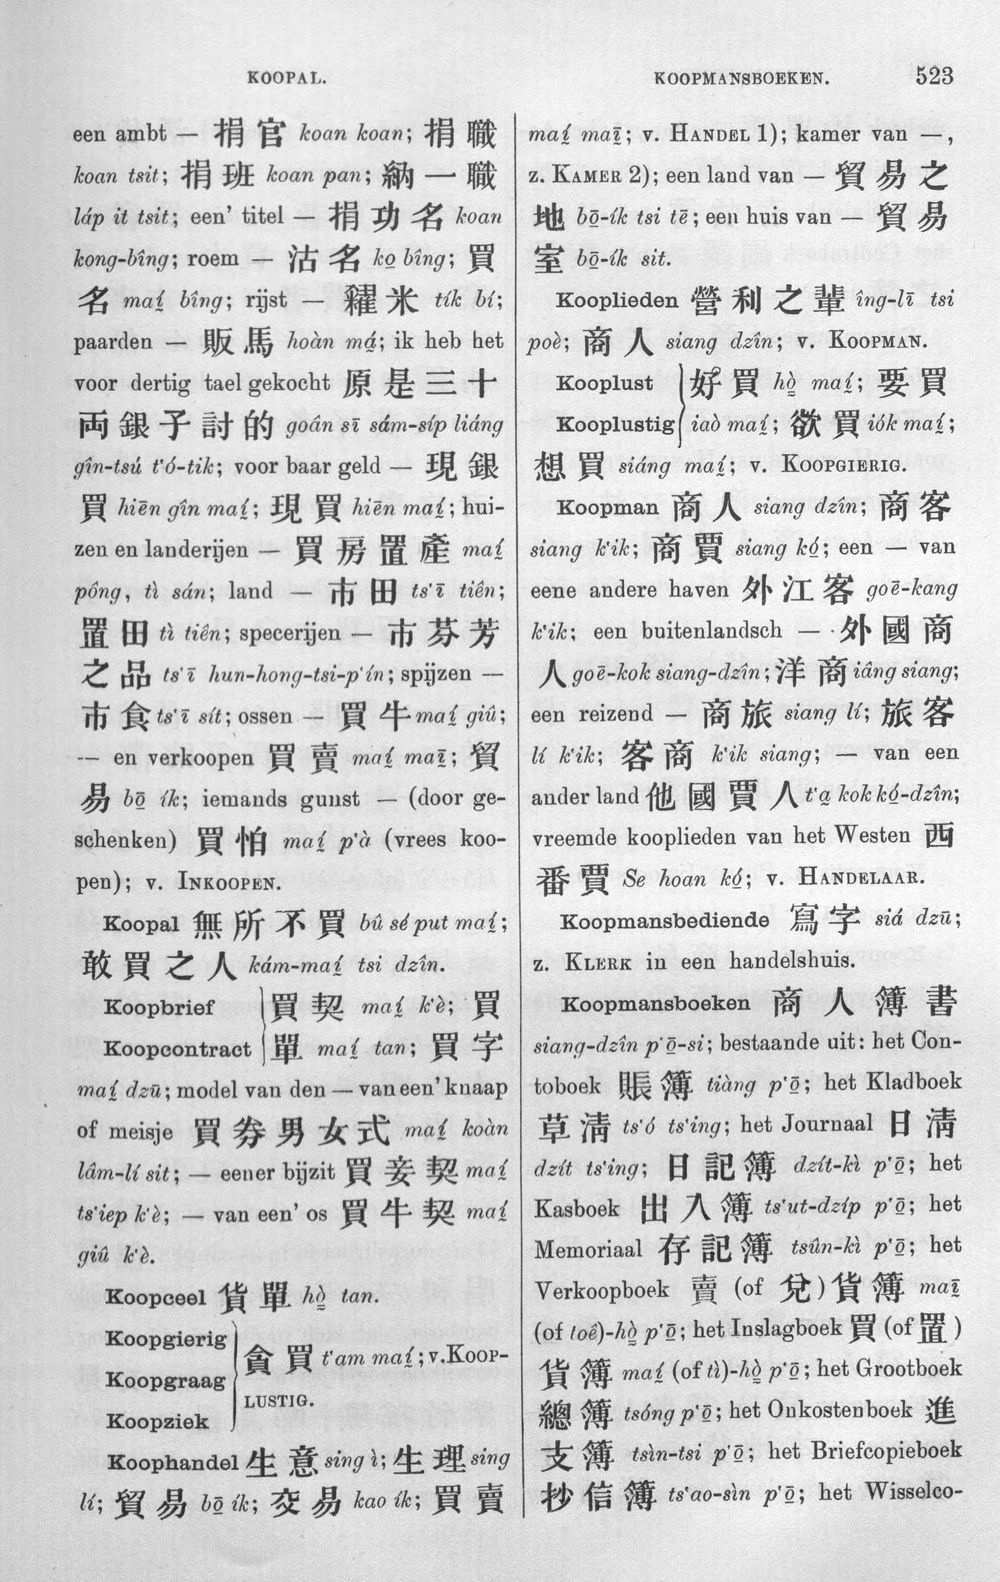 KOOPAL.
KOOPMANSBOEKEN. 523
een ambt — 捐官 koan koan; 捐職
koan tsit; 捐班 koan pan; 納一職
láp it tsit; een' titel — 捐功名 koan
kong-bîng; roem — 沽名 ko̱ bîng; 買
名 maí̱ bîng; rijst — 糴米 tík bí;
paarden — 販馬 hoàn má̱; ik heb het
voor dertig tael gekocht 原是三十
両銀子討的 goân sī sám-síp liáng
gîn-tsú t'ó-tik; voor baar geld — 現銀
買 hiēn gîn maí̱; 現買 hiēn maí̱; hui-
zen en landerijen — 買房置產 maí̱
pông, tì sán; land — 市田 ts'ī tiên;
置田 tì tiên; specerijen — 市芬芳
之品 ts'ī hun-hong-tsi-p'ín; spijzen —
市食 ts'ī sít; ossen — 買牛 maí̱ giû;
— en verkoopen 買賣 maí̱ maī̱; 貿
易 bō̱ ík; iemands gunst — (door ge-
schenken) 買怕 maí̱ p'à (vrees koo-
pen); v. INKOOPEN.
Koopal 無所不買 bû sé put maí̱;
敢買之人 kám-maí̱ tsi dzîn.
Koopbrief 買契 maí̱ k'è; 買
Koopcontract 單 maí̱ tan; 買字
maí̱ dzū; model van den — van een' knaap
of meisje 買券男女式 maí̱ koàn
lâm-lí sit; — eener bijzit 買妾契 maí̱
ts'iep k'è; — van een' os 買牛契 maí̱
giû k'è.
Koopceel 貨單 hò̱ tan.
Koopgierig
Koopgraag 貪買 t'am maí̱; v. KOOP-
Koopziek LUSTIG.
Koophandel 生意 sing ì; 生理 sing
lí; 貿易 bō̱ ík; 交易 kao ík; 買賣
maí̱ maī̱; v. HANDEL 1); kamer van —,
z. KAMER 2); een land van — 貿易之
地 bō̱-ík tsi tē; een huis van — 貿易
室 bō̱-ík sit.
Kooplieden 營利之輩 îng-lī tsi
poè; 商人 siang dzîn; v. KOOPMAN.
Kooplust 好買 hò̱ maí̱; 要買
Kooplustig iaò maí̱; 欲買 iók maí̱;
想買 siáng maí̱; v. KOOPGIERIG.
Koopman 商人 siang dzîn; 商客
siang k'ik; 商賈 siang kó̱; een — van
eene andere haven 外江客 goē-kang
k'ik; een buitenlandsch — 外國商
人 goē-kok siang-dzîn; 洋商 iâng siang;
een reizend — 商旅 siang lí; 旅客
lí k'ik; 客商 k'ik siang; — van een
ander land 他國賈人 t'a̱ kok kó̱-dzîn;
vreemde kooplieden van het Westen 西
番賈 Se hoan kó̱; v. HANDELAAR.
Koopmansbediende 寫字 siá dzū;
z. KLERK in een handelshuis.
Koopmansboeken 商人簿書
siang-dzîn p'ō̱-si; bestaande uit: het Con-
toboek 賬簿 tiàng p'ō̱; het Kladboek
草淸 ts'ó ts'ing; het Journaal 日淸
dzít ts'ing; 日記簿 dzít-kì p'ō̱; het
Kasboek 出入簿 ts'ut-dzíp p'ō̱; het
Memoriaal 存記簿 tsûn-kì p'ō̱; het
Verkoopboek 賣 (of 兌) 貨簿 maī̱
(of toē)-hò̱ p'ō̱; het Inslagboek 買 (of 置)
貨簿 maí̱ (of tì)-hò̱ p'ō̱; het Grootboek
總簿 tsóng p'ō̱; het Onkostenboek 進
支簿 tsìn-tsi p'ō̱; het Briefcopieboek
抄信簿 ts'ao-sìn p'ō̱; het Wisselco-